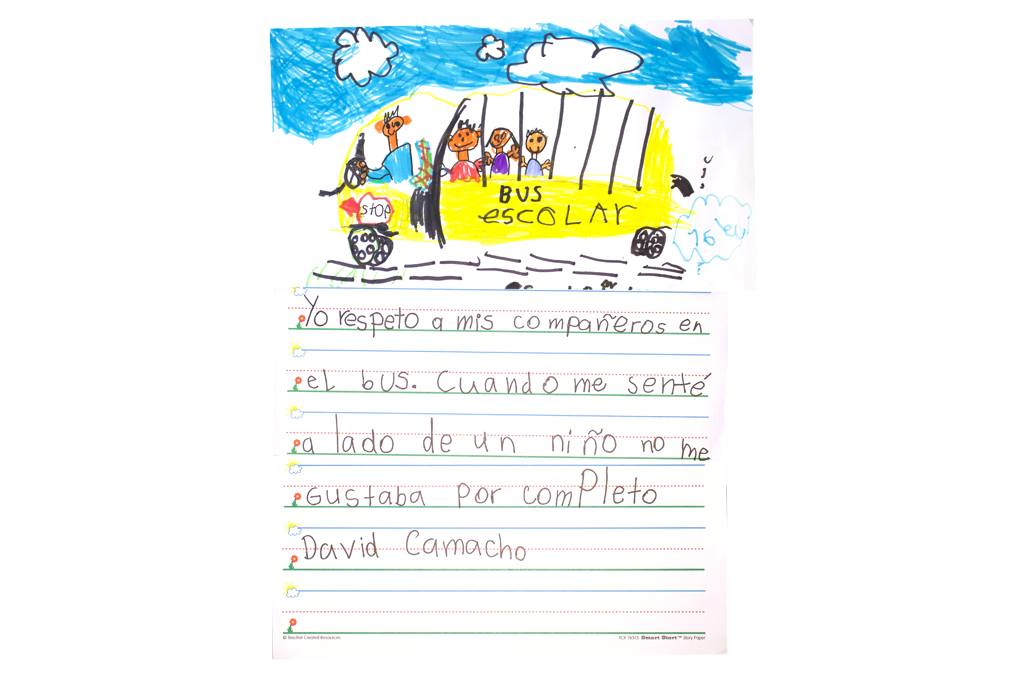 BUS
escolar
STOP
Yo respeto a mis compañeros en
el bus. Cuando me senté
a lado de un niño no me
gustaba por completo
David Camacho
© Teacher Created Resources
TCR 76515 Smart Start™ Story Paper